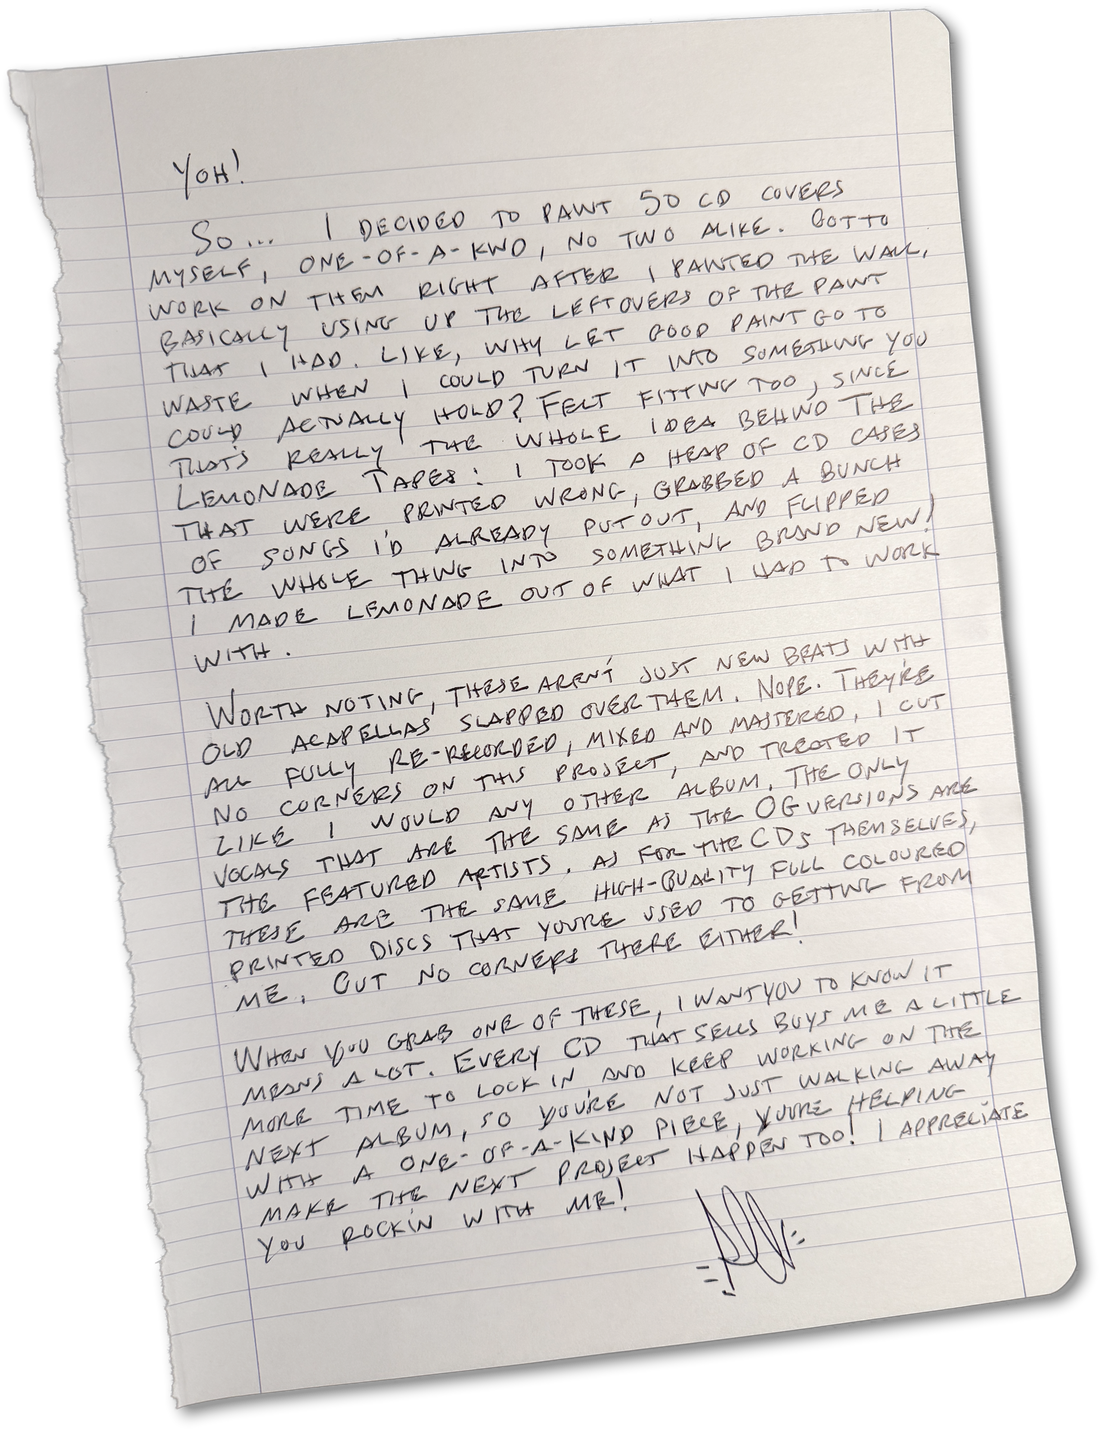 YOH!
SO... I DECIDED TO PAINT 50 CD COVERS
MYSELF, ONE-OF-A-KIND, NO TWO ALIKE. GOT TO
WORK ON THEM RIGHT AFTER I PAINTED THE WALL,
BASICALLY USING UP THE LEFTOVERS OF THE PAINT
THAT I HAD. LIKE, WHY LET GOOD PAINT GO TO
WASTE WHEN I COULD TURN IT INTO SOMETHING YOU
COULD ACTUALLY HOLD? FELT FITTING TOO, SINCE
THAT'S REALLY THE WHOLE IDEA BEHIND THE
LEMONADE TAPES: I TOOK A HEAP OF CD CASES
THAT WERE PRINTED WRONG, GRABBED A BUNCH
OF SONGS I'D ALREADY PUT OUT, AND FLIPPED
THE WHOLE THING INTO SOMETHING BRAND NEW!
I MADE LEMONADE OUT OF WHAT I HAD TO WORK
WITH.
WORTH NOTING, THESE AREN'T JUST NEW BEATS WITH
OLD ACAPELLAS SLAPPED OVER THEM. NOPE. THEY'RE
ALL FULLY RE-RECORDED, MIXED AND MASTERED, I CUT
NO CORNERS ON THIS PROJECT, AND TREATED IT
LIKE I WOULD ANY OTHER ALBUM. THE ONLY
VOCALS THAT ARE THE SAME AS THE OG VERSIONS ARE
THE FEATURED ARTISTS. AS FOR THE CDS THEMSELVES,
THESE ARE THE SAME HIGH-QUALITY FULL COLOURED
PRINTED DISCS THAT YOU'RE USED TO GETTING FROM
ME. CUT NO CORNERS THERE EITHER!
WHEN YOU GRAB ONE OF THESE, I WANT YOU TO KNOW IT
MEANS A LOT. EVERY CD THAT SELLS BUYS ME A LITTLE
MORE TIME TO LOCK IN AND KEEP WORKING ON THE
NEXT ALBUM, SO YOU'RE NOT JUST WALKING AWAY
WITH A ONE-OF-A-KIND PIECE, YOU'RE HELPING
MAKE THE NEXT PROJECT HAPPEN TOO! I APPRECIATE
YOU ROCKIN WITH ME!